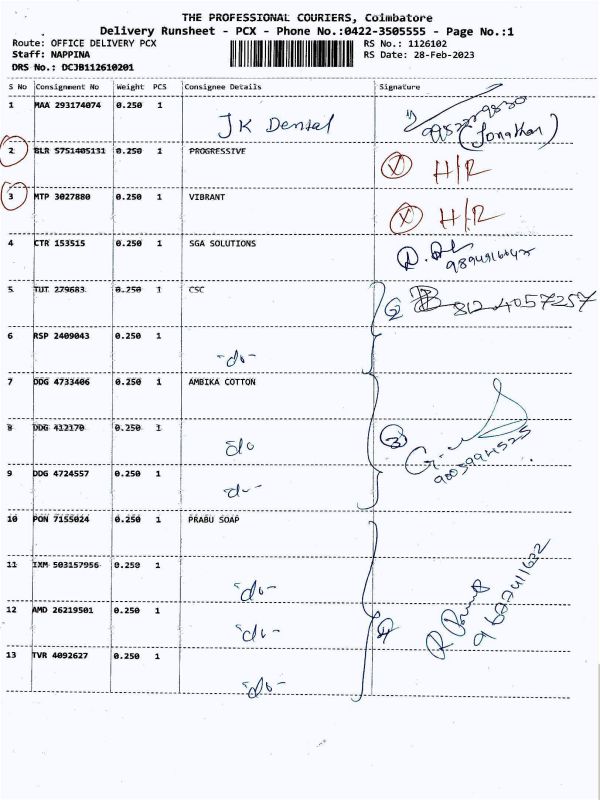 THE PROFESSIONAL COURIERS, Coimbatore
Delivery Runsheet - PCX - Phone No.:0422-3505555 - Page No.:1
Route: OFFICE DELIVERY PCX RS No.: 1126102
Staff: NAPPINA RS Date: 28-Feb-2023
DRS No.: DCJB112610201
S No Consignment No Weight PCS Consignee Details Signature
1 MAA 293174074 0.250 1 JK Dental
(Jonathan)
2 BLR 5751405131 0.250 1 PROGRESSIVE X H/R
3 MTP 3027880 0.250 1 VIBRANT X H/R
4 CTR 153515 0.250 1 SGA SOLUTIONS
5 TUT 279683 0.250 1 CSC 2 8124057257
6 RSP 2409043 0.250 1 -do-
7 DDG 4733406 0.250 1 AMBIKA COTTON
8 DDG 412170 0.250 1 do 3
9 DDG 4724557 0.250 1 do-
10 PON 7155024 0.250 1 PRABU SOAP
11 IXM 503157956 0.250 1 -do-
12 AMD 26219501 0.250 1 -do- 4
13 TVR 4092627 0.250 1 -do-